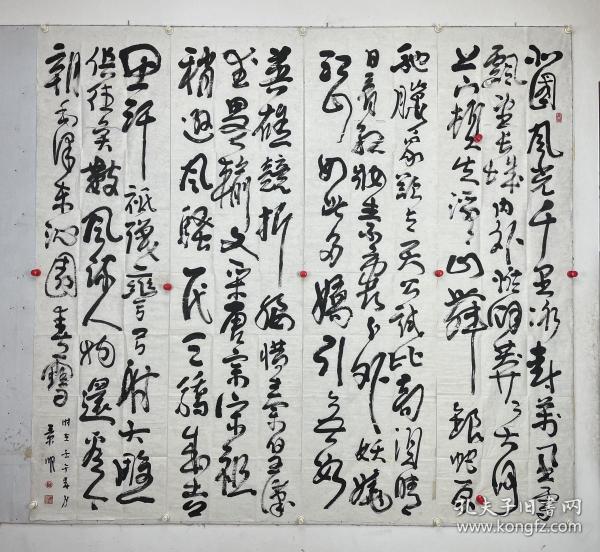 北国风光千里冰封万里雪
飘望长城内外惟余莽莽大河
上下顿失滔滔山舞银蛇原
驰腊象欲与天公试比高须晴
日看红妆素裹分外妖娆
江山如此多娇引无数
英雄竞折腰惜秦皇汉
武略输文采唐宗宋祖
稍逊风骚一代天骄成吉
思汗祗识弯弓射大雕
俱往矣数风流人物还看今
朝毛泽东沁园春雪
孔夫子旧书网
www.kongfz.com